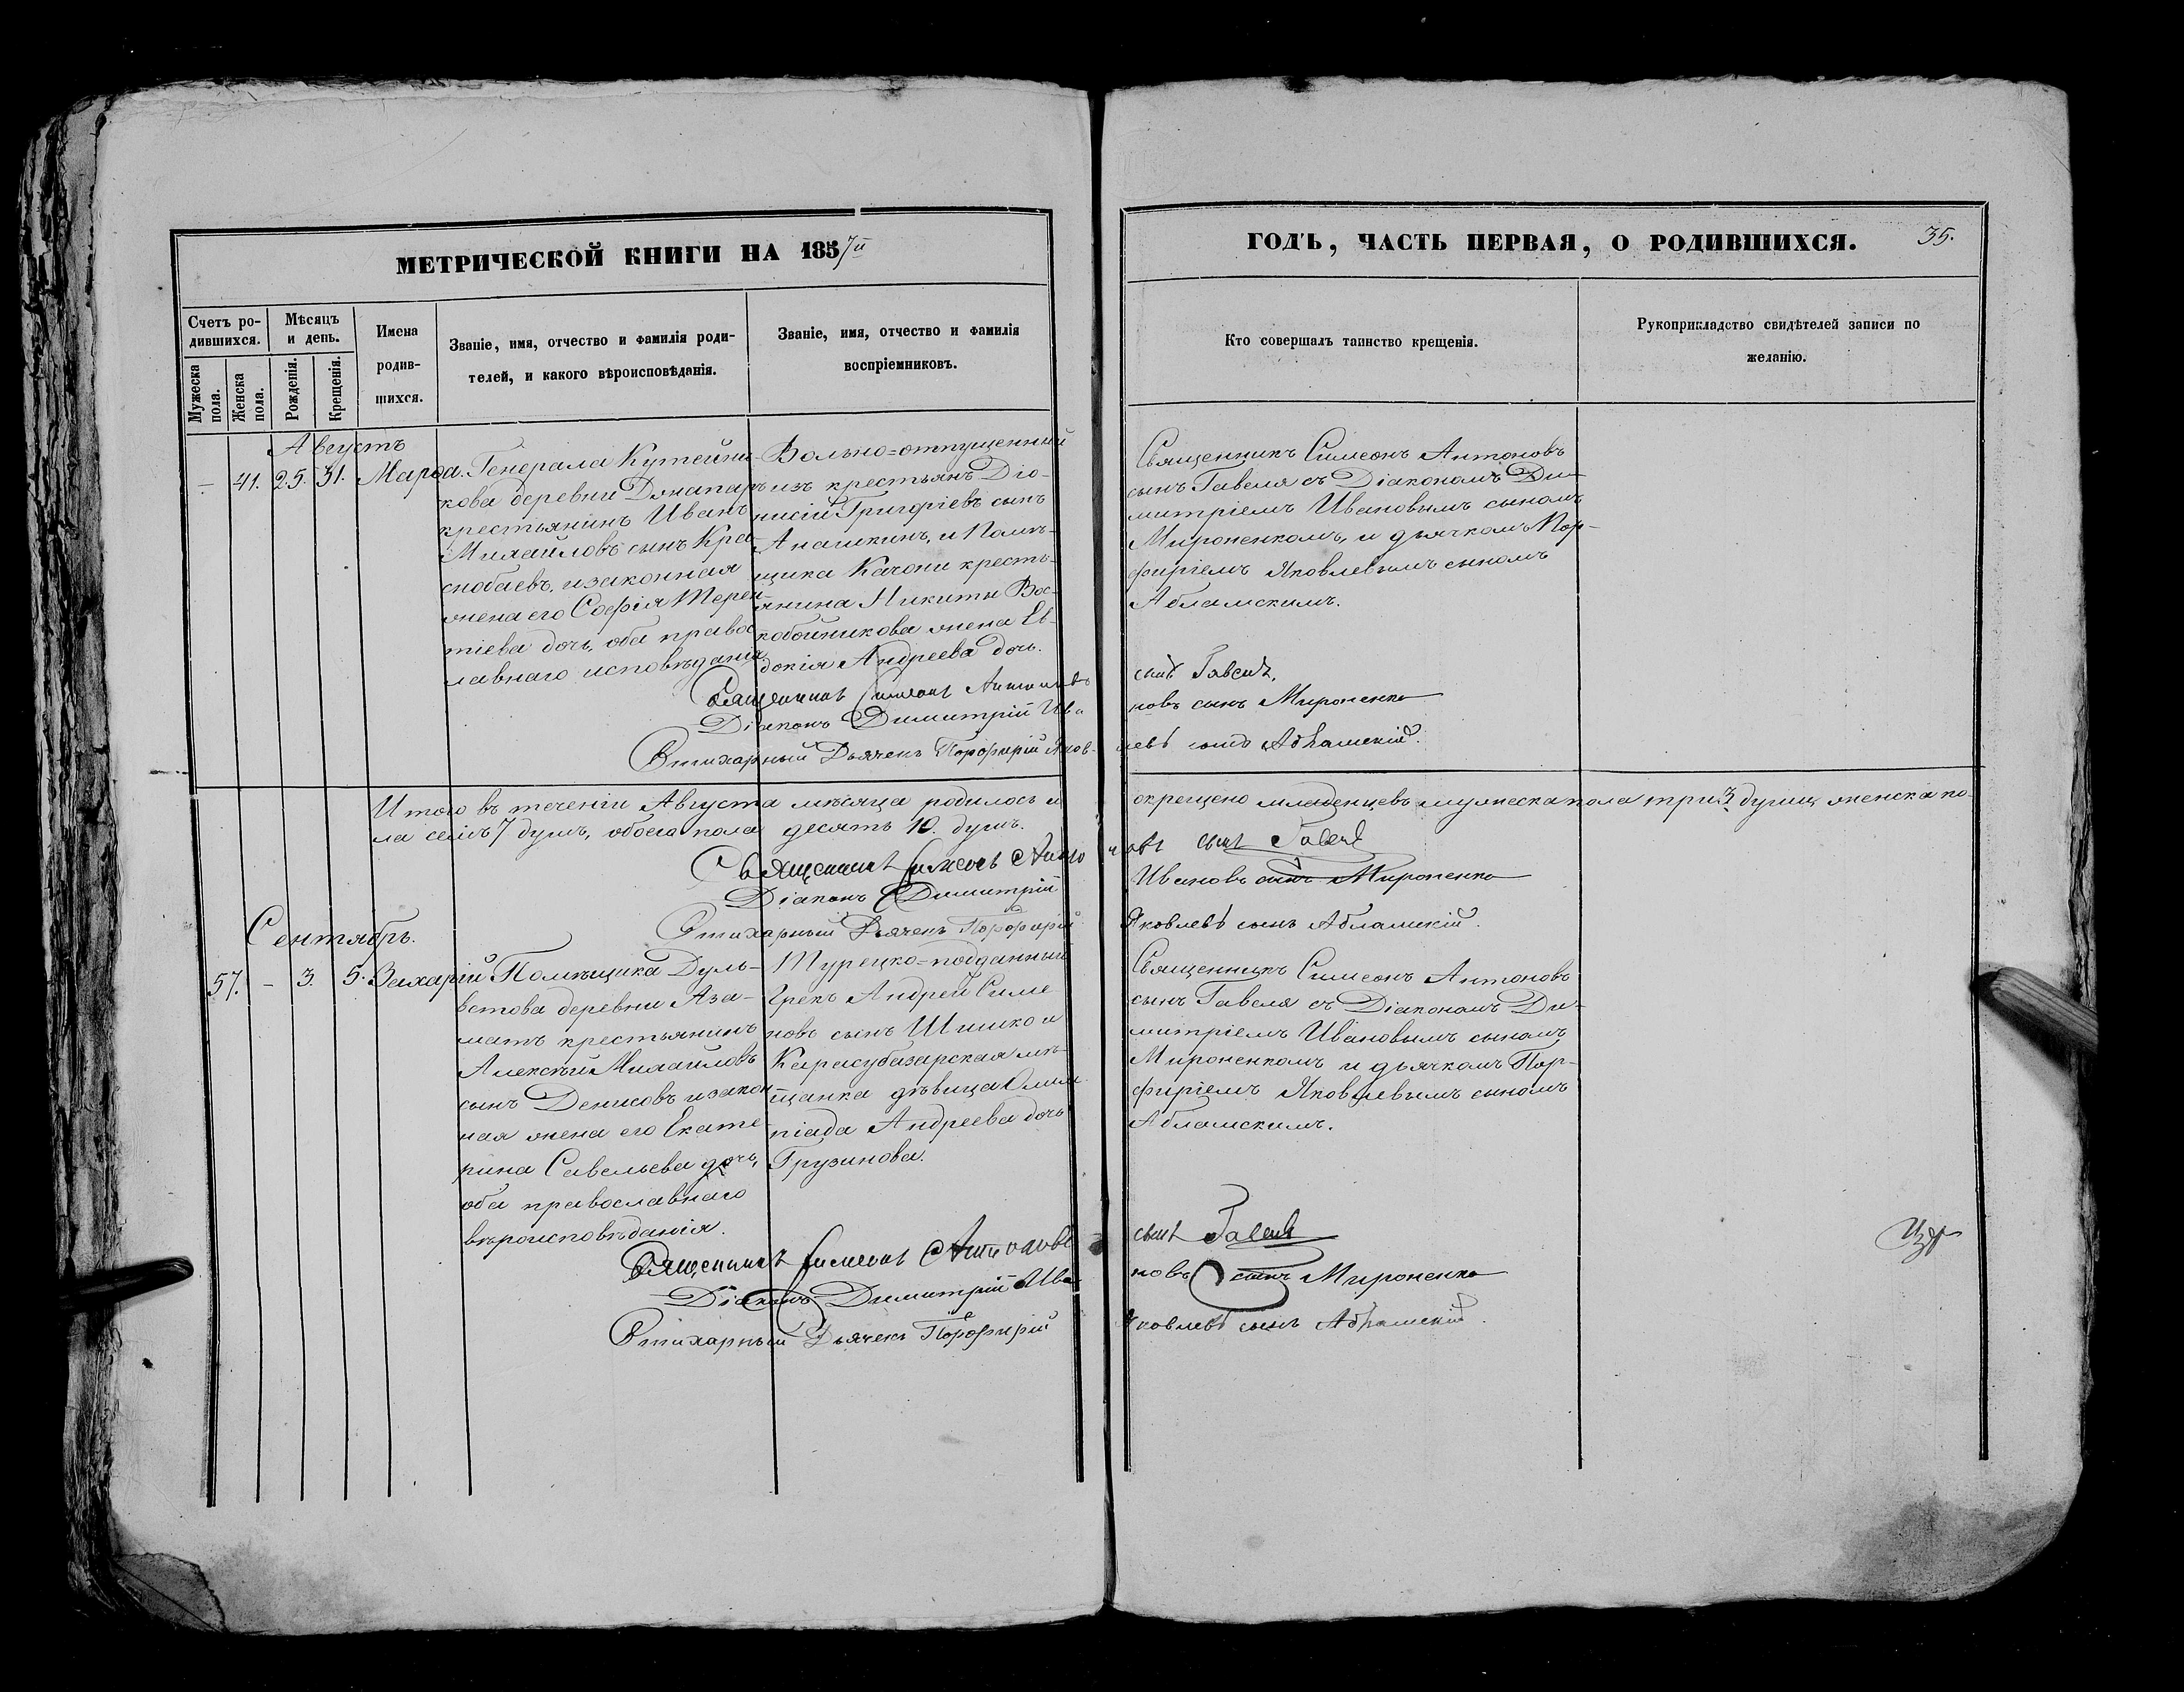 МЕТРИЧЕСКОЙ КНИГИ НА 1857й
ГОДЪ, ЧАСТЬ ПЕРВАЯ, О РОДИВШИХСЯ.
35.
Счетъ ро-
дившихся.
Мужеска
пола.
Женска
пола.
Мѣсяцъ
и день.
Рожденія.
Крещенія.
Имена
родив-
шихся.
Званіе, имя, отчество и фамилія роди-
телей, и какого вѣроисповѣданія.
Званіе, имя, отчество и фамилія
воспріемниковъ.
Кто совершалъ таинство крещенія.
Рукоприкладство свидѣтелей записи по
желанію.
Августъ
- 41. 25. 31. Марѳа.
Генерала Кутейни-
кова деревни Джапаръ
крестьянинъ Иванъ
Михайловъ сынъ Кра-
снобаевъ, и законная
жена его Софія Терен-
тіева дочь, оба правос-
лавнаго исповѣданія
Вольно=отпущенный
изъ крестьянъ Діо-
нисій Григоріевъ сынъ
Анашкинъ, и Помѣ-
щика Качони кресть-
янина Никиты Вос-
кобойникова жена Ев-
докія Андреева дочь.
Священникъ Симеонъ Антоновъ
сынъ Гавеля съ Діакономъ Ди-
митріемъ Ивановымъ сыномъ
Мироненкомъ, и дьячкомъ Пор-
фиріемъ Яковлевымъ сыномъ
Абламскимъ.
Священникъ Симеонъ Антоновъ сынъ Гавеля.
Діаконъ Димитрій Ивановъ сынъ Мироненко
Стихарный Дьячекъ Порфирій Яковлевъ сынъ Абламскій.
Итого въ теченіи Августа мѣсяца родилось и окрещено младенцевъ мужеска пола три 3 души, женска по-
ла семь 7 душъ, обоего пола десять 10. душъ.
Священникъ Симеонъ Антоновъ сынъ Гавеля
Діаконъ Димитрій Ивановъ сынъ Мироненко
Стихарный Дьячекъ Порфирій Яковлевъ сынъ Абламскій.
Сентябрь.
57. - 3. 5. Захарій
Помѣщика Дуль-
ветова деревни Аза-
матъ крестьянинъ
Алексѣй Михайловъ
сынъ Денисовъ и закон-
ная жена его Екате-
рина Савельева дочь,
оба православнаго
вѣроисповѣданія.
Турецко=подданный
Грекъ Андрей Симе
новъ сынъ Шишко и
Карасубазарская мѣ-
щанка дѣвица Олим-
піада Андреева дочь
Грузинова.
Священникъ Симеонъ Антоновъ
сынъ Гавеля съ Діакономъ Ди-
митріемъ Ивановымъ сыномъ
Мироненкомъ и дьячкомъ Пор-
фиріемъ Яковлевымъ сыномъ
Абламскимъ.
Священникъ Симеонъ Антоновъ сынъ Гавеля
Діаконъ Димитрій Ивановъ сынъ Мироненко
Стихарный Дьячекъ Порфирій Яковлевъ сынъ Абламскій.